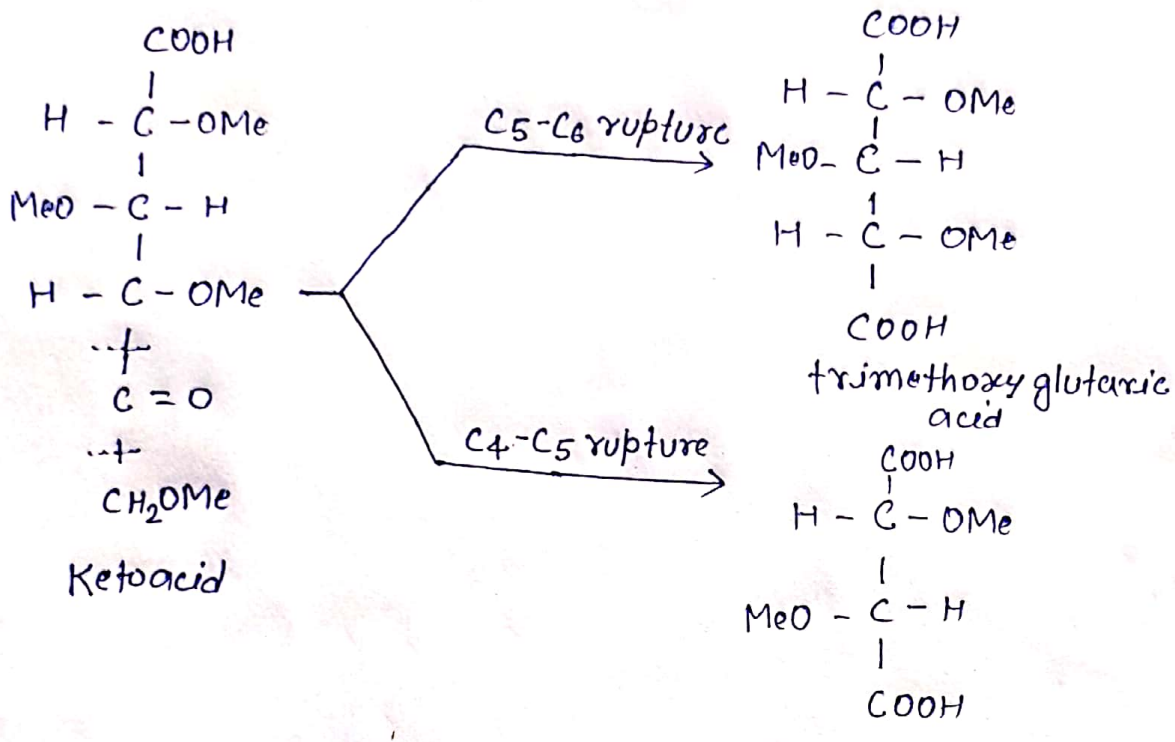 COOH
H - C - OMe
MeO - C - H
H - C - OMe
C = O
CH₂OMe
Ketoacid
C5-C6 rupture
C4-C5 rupture
COOH
H - C - OMe
MeO- C - H
H - C - OMe
COOH
trimethoxy glutaric
acid
COOH
H - C - OMe
MeO - C - H
COOH